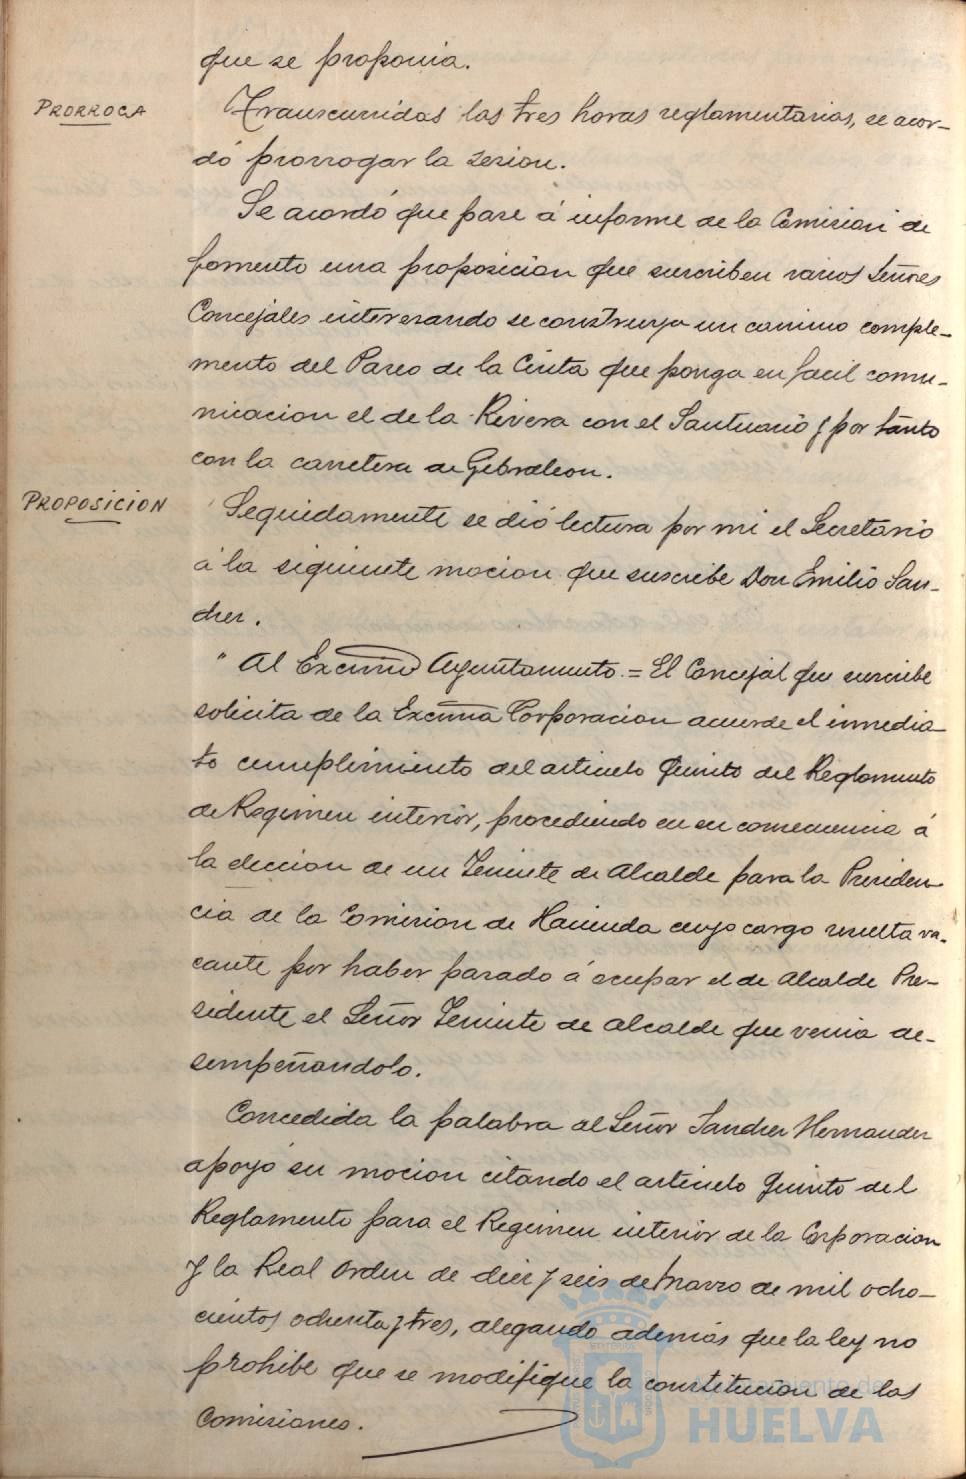 que se proponia.
PRORROGA
Transcurridas las tres horas reglamentarias, se acor-
dó prorrogar la sesion.
Se acordó que pase á informe de la Comision de
fomento una proposicion que suscriben varios Señores
Concejales interesando se construya un camino comple-
mento del Paseo de la Cinta que ponga en facil comu-
nicacion el de la Rivera con el Santuario y por tanto
con la carretera de Gibraleon.
PROPOSICION
Seguidamente se dió lectura por mi el Secretario
á la siguiente mocion que suscribe Don Emilio San-
chez.
" Al Excmo Ayuntamiento. = El Concejal que suscribe
solicita de la Excma Corporacion acuerde el inmedia-
to cumplimiento del articulo quinto del Reglamento
de Regimen interior, procediendo en su consecuencia á
la eleccion de un Teniente de Alcalde para la Presiden-
cia de la Comision de Hacienda cuyo cargo resulta va-
cante por haber pasado á ocupar el de Alcalde Pre-
sidente el Señor Teniente de alcalde que venia de-
sempeñandolo.
Concedida la palabra al Señor Sanchez Hernandez
apoyó su mocion citando el articulo quinto del
Reglamento para el Regimen interior de la Corporacion
y la Real Orden de diez y seis de Marzo de mil ocho-
cientos ochenta y tres, alegando además que la ley no
prohibe que se modifique la constitucion de las
Comisiones.
Ayuntamiento de
HUELVA